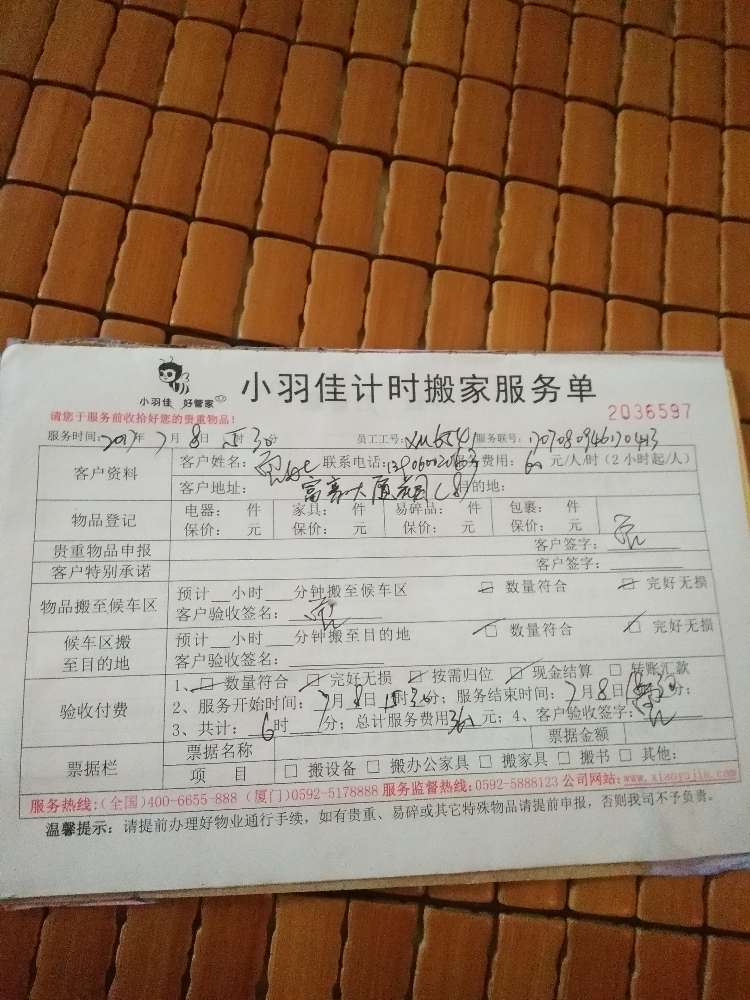 小羽佳 好管家
小羽佳计时搬家服务单
请您于服务前收拾好您的贵重物品！
2036597
服务时间：2017年7月8日 时30分 员工工号：XM654 服务联号：
客户资料 客户姓名： 联系电话： 服务费用：60元/人/时（2小时起/人）
客户地址：富豪大厦 目的地：
物品登记 电器： 件 家具： 件 易碎品： 件 包裹： 件
保价： 元 保价： 元 保价： 元 保价： 元
贵重物品申报 客户签字：
客户特别承诺 客户签字：
物品搬至候车区 预计__小时___分钟搬至候车区 数量符合 完好无损
客户验收签名：
候车区搬至目的地 预计__小时___分钟搬至目的地 数量符合 完好无损
客户验收签名：
验收付费 1、 数量符合 完好无损 按需归位 现金结算 转账汇款
2、服务开始时间：7月8日 时30分；服务结束时间：7月8日 分；
3、共计：6时 分；总计服务费用 元；4、客户验收签字：
票据栏 票据名称 票据金额
项 目 □ 搬设备 □ 搬办公家具 □ 搬家具 □ 搬书 □ 其他：
服务热线：（全国）400-6655-888（厦门）0592-5178888 服务监督热线：0592-5888123 公司网站：www.xiaoyujia.com
温馨提示：请提前办理好物业通行手续，如有贵重、易碎或其它特殊物品请提前申报，否则我司不予负责。